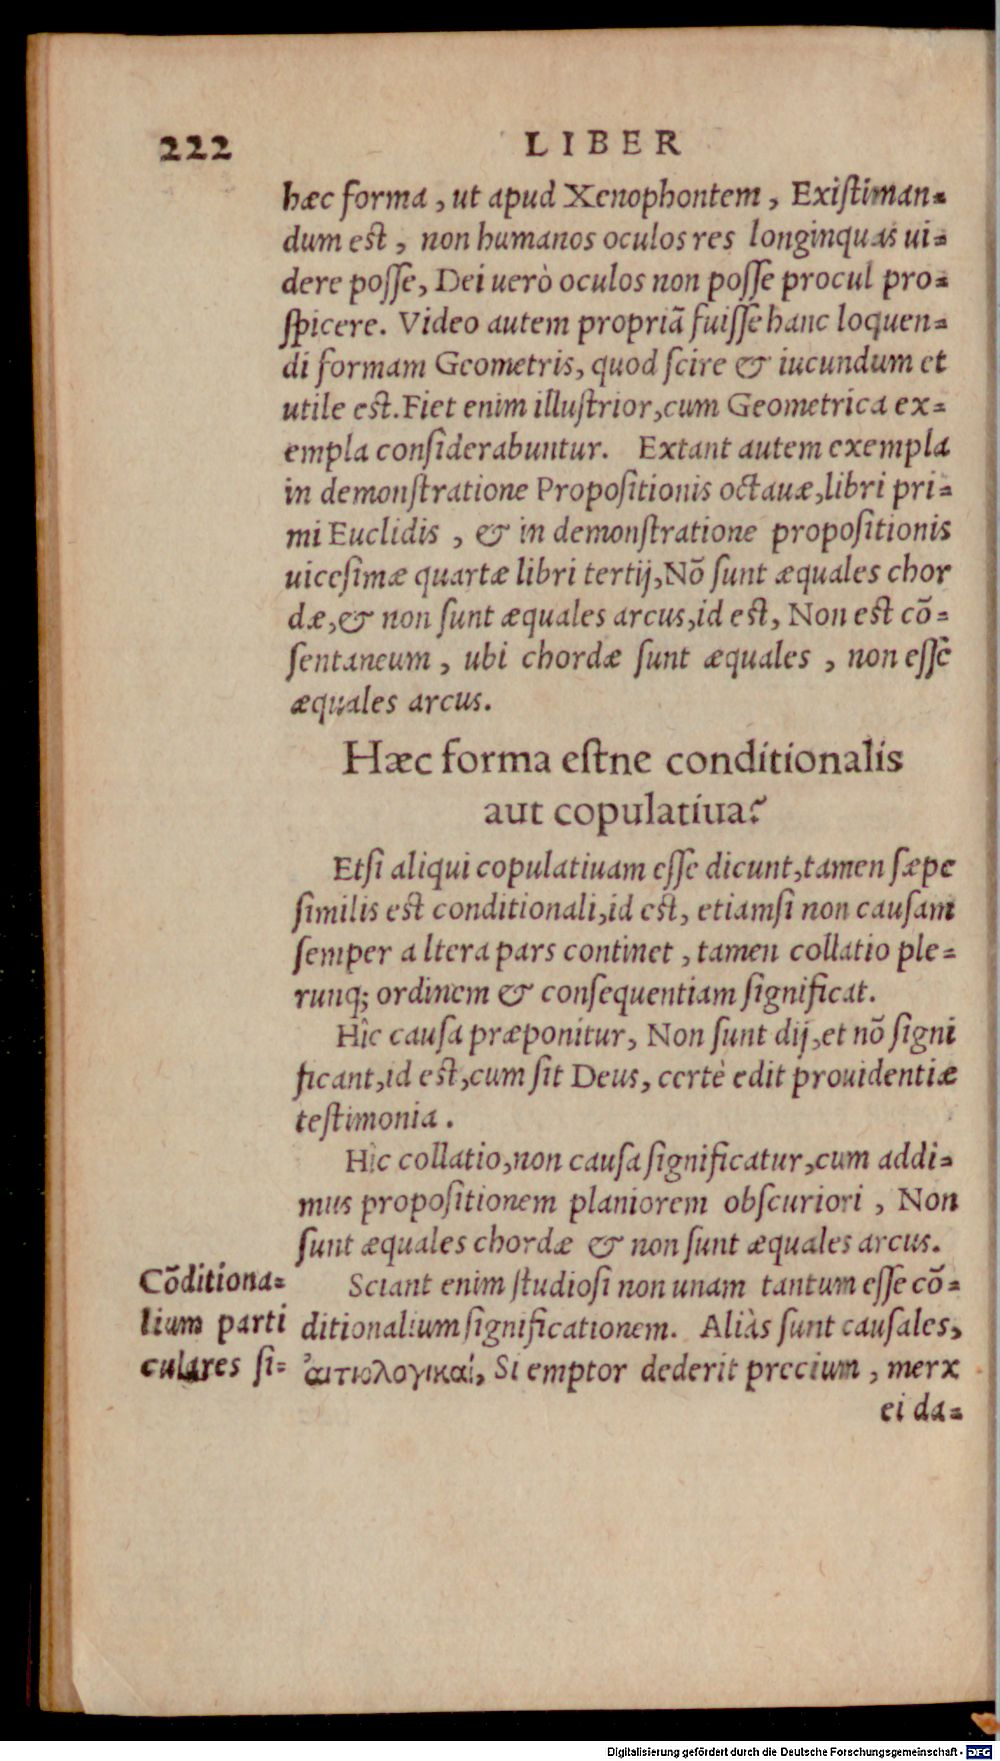 222 LIBER
hæc forma, ut apud Xenophontem, Existiman-
dum est, non humanos oculos res longinquas ui-
dere posse, Dei uerò oculos non posse procul pro-
spicere. Video autem propriã fuisse hanc loquen-
di formam Geometris, quod scire & iucundum et
utile est. Fiet enim illustrior, cum Geometrica ex-
empla considerabuntur. Extant autem exempla
in demonstratione Propositionis octauæ, libri pri-
mi Euclidis, & in demonstratione propositionis
uicesimæ quartæ libri tertij, Nõ sunt æquales chor
dæ, & non sunt æquales arcus, id est, Non est cõ-
sentaneum, ubi chordæ sunt æquales, non esse
æquales arcus.
Hæc forma estne conditionalis
aut copulatiua?
Etsi aliqui copulatiuam esse dicunt, tamen sæpe
similis est conditionali, id est, etiamsi non causam
semper altera pars continet, tamen collatio ple-
runq; ordinem & consequentiam significat.
Hîc causa præponitur, Non sunt dij, et nõ signi
ficant, id est, cum sit Deus, certè edit prouidentiæ
testimonia.
Hic collatio, non causa significatur, cum addi-
mus propositionem planiorem obscuriori, Non
sunt æquales chordæ & non sunt æquales arcus.
Sciant enim studiosi non unam tantum esse cõ-
ditionalium significationem. Aliàs sunt causales,
ἀιτιολογικαί, Si emptor dederit precium, merx
ei da-
Cõditiona-
lium parti
culares si-
Digitalisierung gefördert durch die Deutsche Forschungsgemeinschaft - DFG